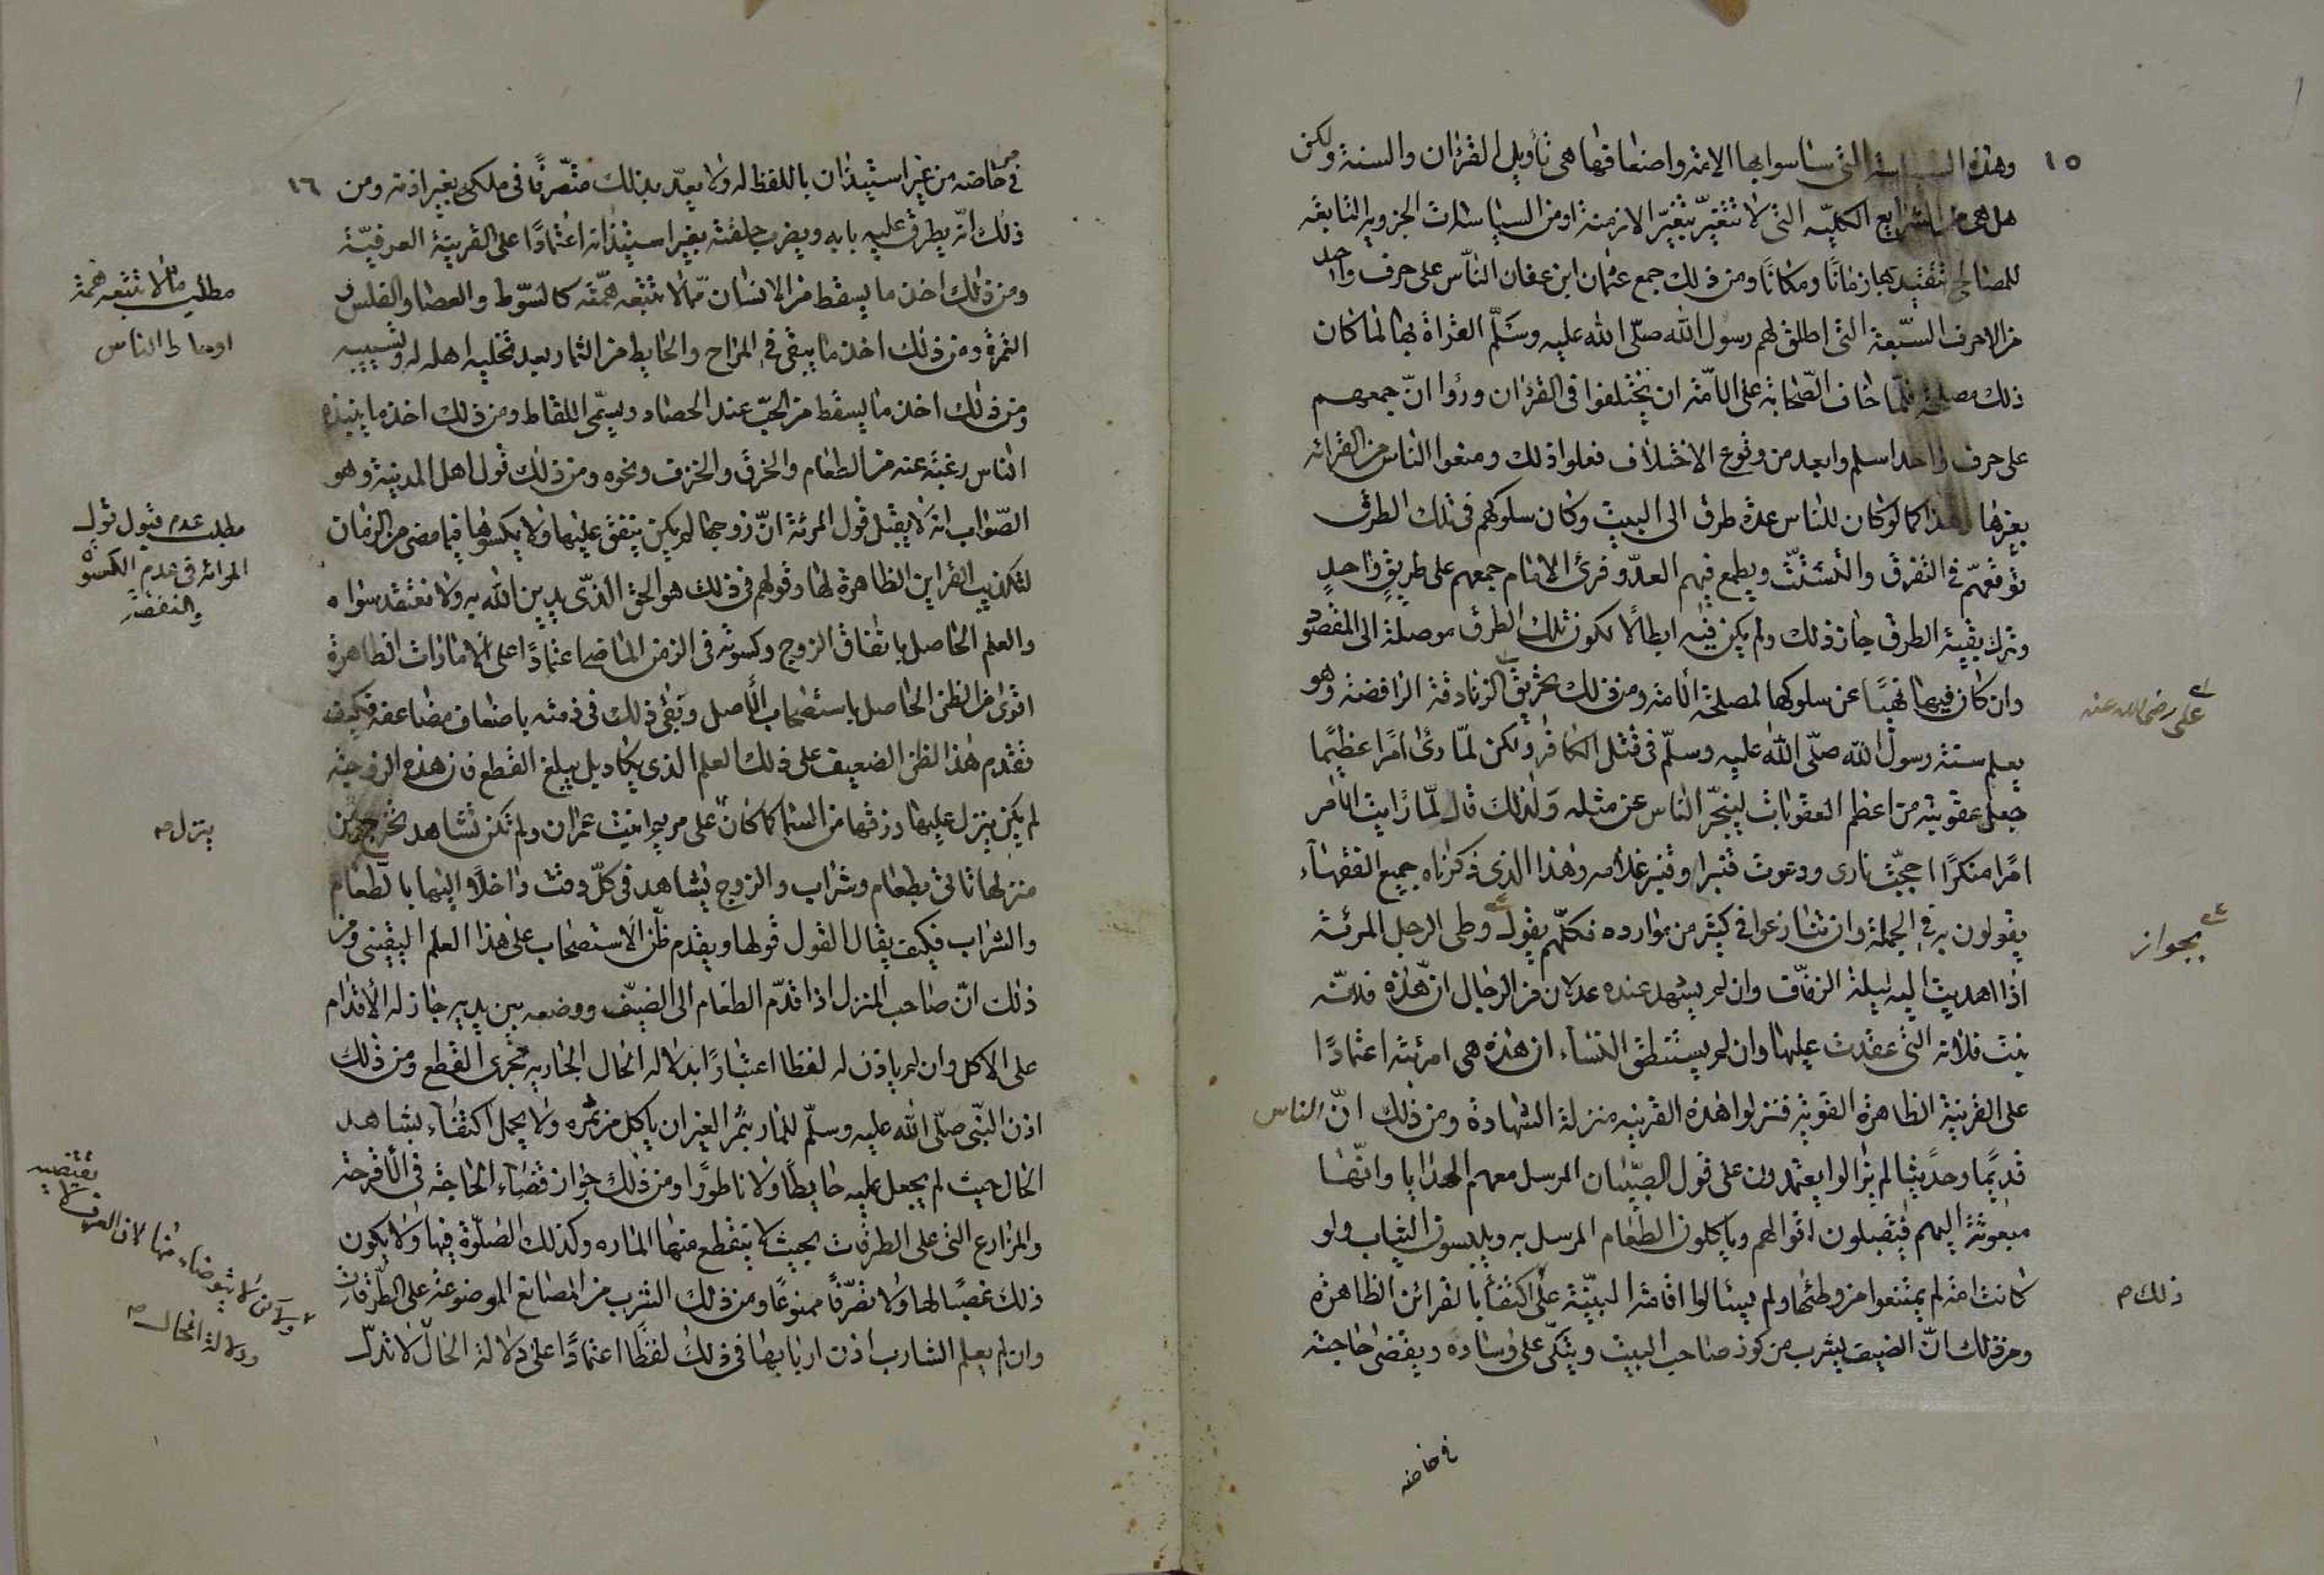 ١٥
وهذه السياسة التي ساسوا بها الامة واضعافها هي تأويل القرآن والسنة ولكن
هل هي من الشرايع الكليّه التي لا تتغيّر بتغيّر الازمنة او من السياسات الجزويه التابعة
للمصالح فتفتيد بها زمانًا ومكانًا ومن ذلك جمع عثمان ابن عفان النّاس على حرف واحد
من الاحرف السّبعة التي اطلق لهم رسول الله صلّى الله عليه وسَلّم القراة بها لما كان
ذلك مصلحة فلمّا خاف الصّحابة على الامّة ان يختلفوا في القرٰان ورٔوا انّ جمعهم
على حرف واحد اسلم وابعد من وقوع الاختلاف فعلوا ذلك ومنعوا الناس من القرائه
بغيرها وهذا كما لو كان للناس عدة طرق الى البيت وكان سلوكهم في تلك الطرق
توقعهّم في التفرق والتشتّت ويطمع فيهم العدّو فرئ الامام جمعهم على طريقٍ واحدٍ
وترك بقية الطرق جاز ذلك ولم يكن فيه ابطالًا لكون تلك الطرق موصلة الى المقصود
وان كان فيها نهيًا عن سلوكها لمصلحة الامة ومن ذلك تحريق الزنادقة الرافضة وهو
يعلم سنة رسول الله صلّى الله عليه وسلّم في قتل الكافر ولكن لمّا رئ امرًا عظيمًا
جعل عقوبته من اعظم العقوبات لينجّر الناس عن مثله وَلذلك قال لمّا رايت الامر
امرًا منكرًا اججّت نارى ودعوت قنبرا وقنبر غلامه وهذا الذي ذكرناه جميع الفقهاء
يقولون به في الجملة وان تنازعوا في كثير من موارده فكلّهم يقول وطى الرجل المرئة
اذا اهديت اليه ليلة الزفّاف وان لم يشهد عنده عدلان من الرجال انّ هذه فلانة
بنت فلانه التي عقدت عليها وان لم يستنطق النساء ان هذه هي امرئته اعتمادًا
على القرينة الظاهرة القوية فنزلوا هذه القرينه منزلة الشهادة ومن ذلك انّ الناس
قديمًا وحديثًا لم يزالوا يعتمدون على قول الصبّيان المرسل معهم الهدايا وانّها
مبعوثة اليهم فيقبلون اقوالهم وياكلون الطعام المرسل به ويلبسون الثياب ولو
كانت امة لم يمتنعوا من وطئها ولم يسئالوا اقامة البيّنة على اكتفأ بالقرائن الظاهرة
ومن ذلك انّ الضيف يشرب من كوز صاحب البيت ويتكّى على وساده ويقضى حاجته
على رضى الله عنه
بجواز
ذلك م
في خاصه
١٦
في خاصه من غير استيذان باللفظ له ولا يعدّ بذلك متصّرفًا في ملكه بغير اذنه ومن
ذلك انّه يطرق عليه بابه ويضرب حلقته بغير استيذانه اعتمادًا على القرينة العرفيّة
ومن ذلك اخذ ما يسقط من الانسان ممّا لا تتبعه همّته كالسّوط والعصا والفلس
التمرة ومن ذلك اخذ ما يبقى في المراح والحايط من الثمار بعد تخليه اهله له وتسيبه
ومن ذلك اخذ ما يسقط من الحبّ عند الحصاد ويسمّى اللقاط ومن ذلك اخذ ما ينبذه
الناس رغبة عنه من الطعام والخرق والخزف ونحوه ومن ذلك قول اهل المدينة وهو
الصّواب انه لا يقبل قول المرئة انّ زوجها لم يكن ينفق عليها ولا يكسوها فيما مضى من الزمان
لتكذيب القراين الظاهرة لها وقولهم في ذلك هو الحق الذّي يدين الله به ولا نعتقد سواه
والعلم الحاصل بانفاق الزوج وكسوته في الزمن الماضي اعتمادًا على الامارات الظاهرة
اقوى من الظن الحاصل باستصحاب الأصل وبقى ذلك في ذمته باضعاف مضاعفه فكيف
نقدم هذا الظن الضعيف على ذلك العلم الذي يكاد يبلغ القطع فان هذه الزوجة
لم يكن ينزل عليها رزقها من السّما كما كان على مريم ابنت عمران ولم تكن تشاهد تخرج من
منزلها تاتي بطعام وشراب والزوج يشاهد في كلّ وقت داخلًا اليها بالطّعام
والشراب فكيف يقال القول قولها ويقدم ظنّ الاستصحاب على هذا العلم اليقيني ومن
ذلك انّ صاحب المنزل اذا قدّم الطعام الى الضيّف ووضعه بين يديه جاز له الأقدام
على الاكل وان لم ياذن له لفظا اعتبارًا بدلاله الحال الجاريه مجرى القطع ومن ذلك
اذن النبّي صلّى الله عليه وسلّم للمار بثمر الغير ان ياكل من ثمره ولا يحمل اكتفاء بشاهد
الحال حيث لم يجعل عليه حايطًا ولا ناطورًا ومن ذلك جواز قضاء الحاجة في الأقرحة
والمزارع التي على الطرقات بحيث لا ينقطع منها الماره وكذلك الصّلوة فيها ولا يكون
ذلك غصبًا لها ولا تصرّفًا ممنوعًا ومن ذلك الشرب من المصانع الموضوعة على الطّرقات
وان لم يعلم الشارب اذن اربابها في ذلك لفظًا اعتمادًا على دلالة الحال لا تدل
مطلب ما لا تتبعه همة
اوساط الناس
مطلب عدم قبول قول
المرائه في عدم الكسوة
والنفقة
ينزل م
ولكن لا يتوضاء منها لان العرف لا
يقتضيه
ودلالة الحال م